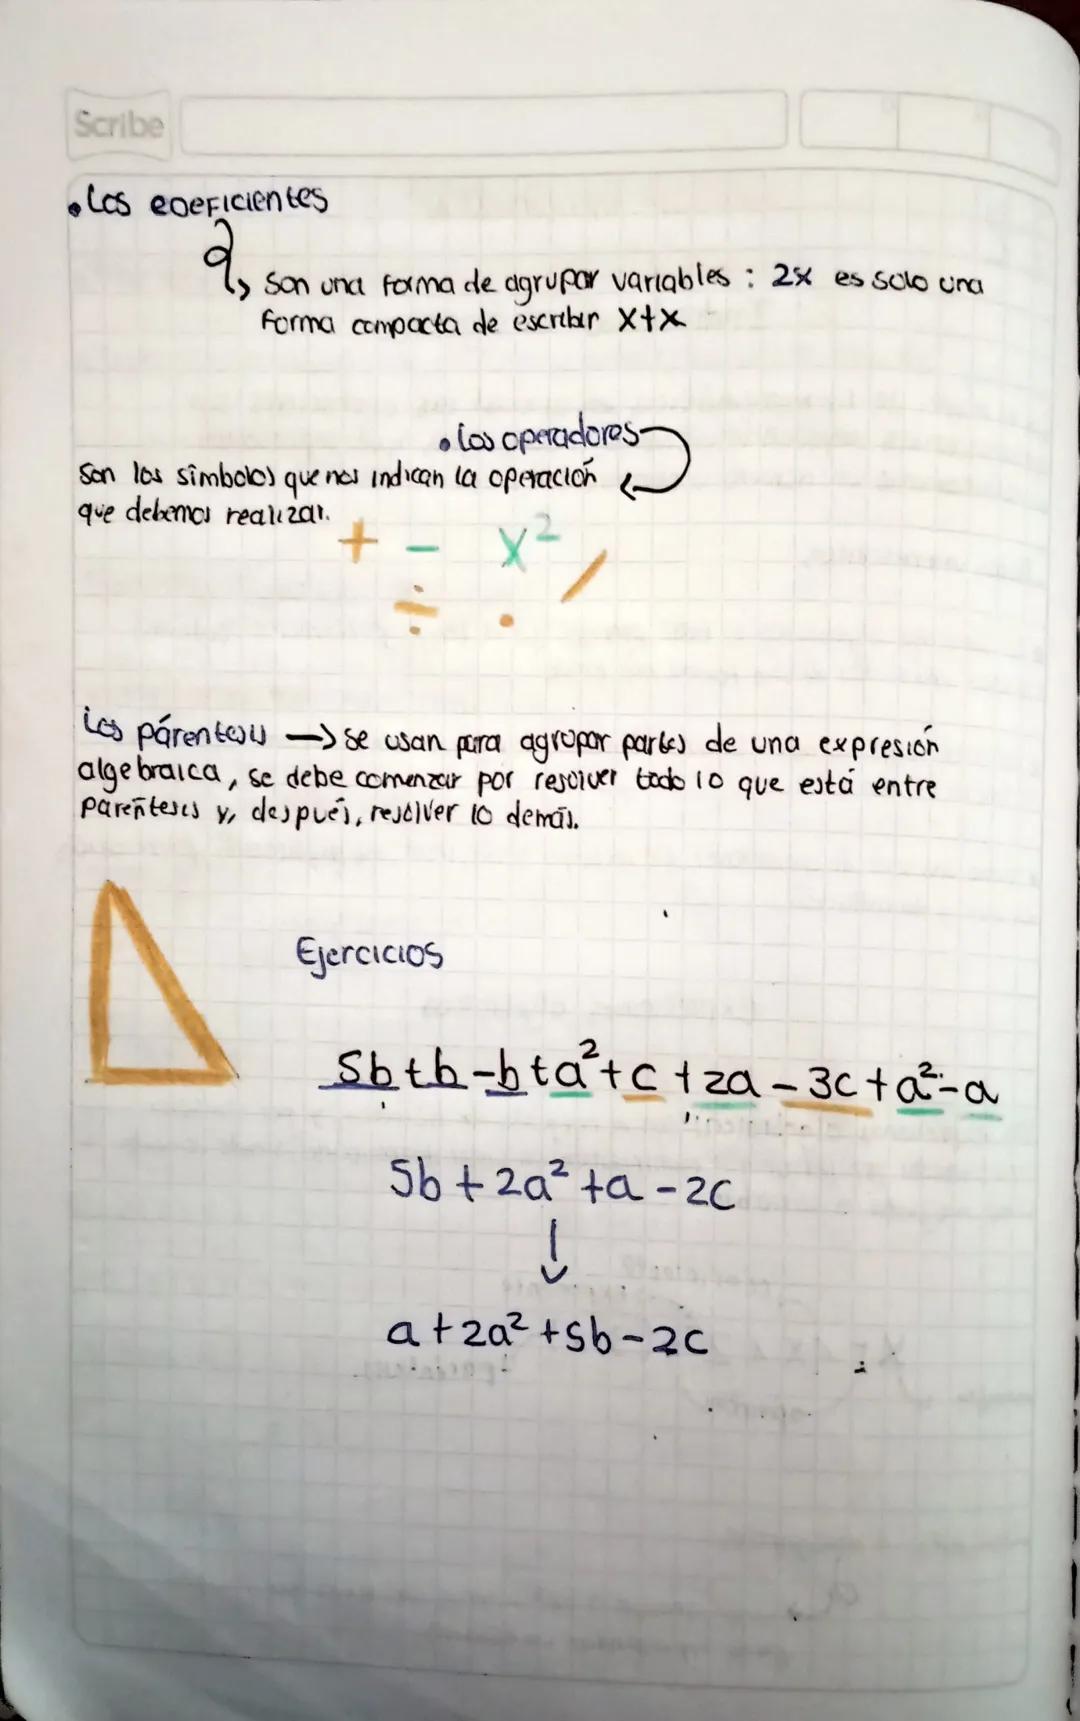 Scribe
• Los coeficientes
Son una forma de agrupar variables : 2x es solo una
forma compacta de escribir x+x
• Los operadores
Son los símbolos que nos indican la operación
que debemos realizar.
+ - x²
÷ . /
Los párentesis → se usan para agrupar partes de una expresión
algebraica, se debe comenzar por resolver todo lo que está entre
paréntesis y, después, resolver lo demás.
Ejercicios
5b+b-b+a²+c+2a-3c+a²-a
5b+2a²+a-2c
↓
a+2a²+5b-2c